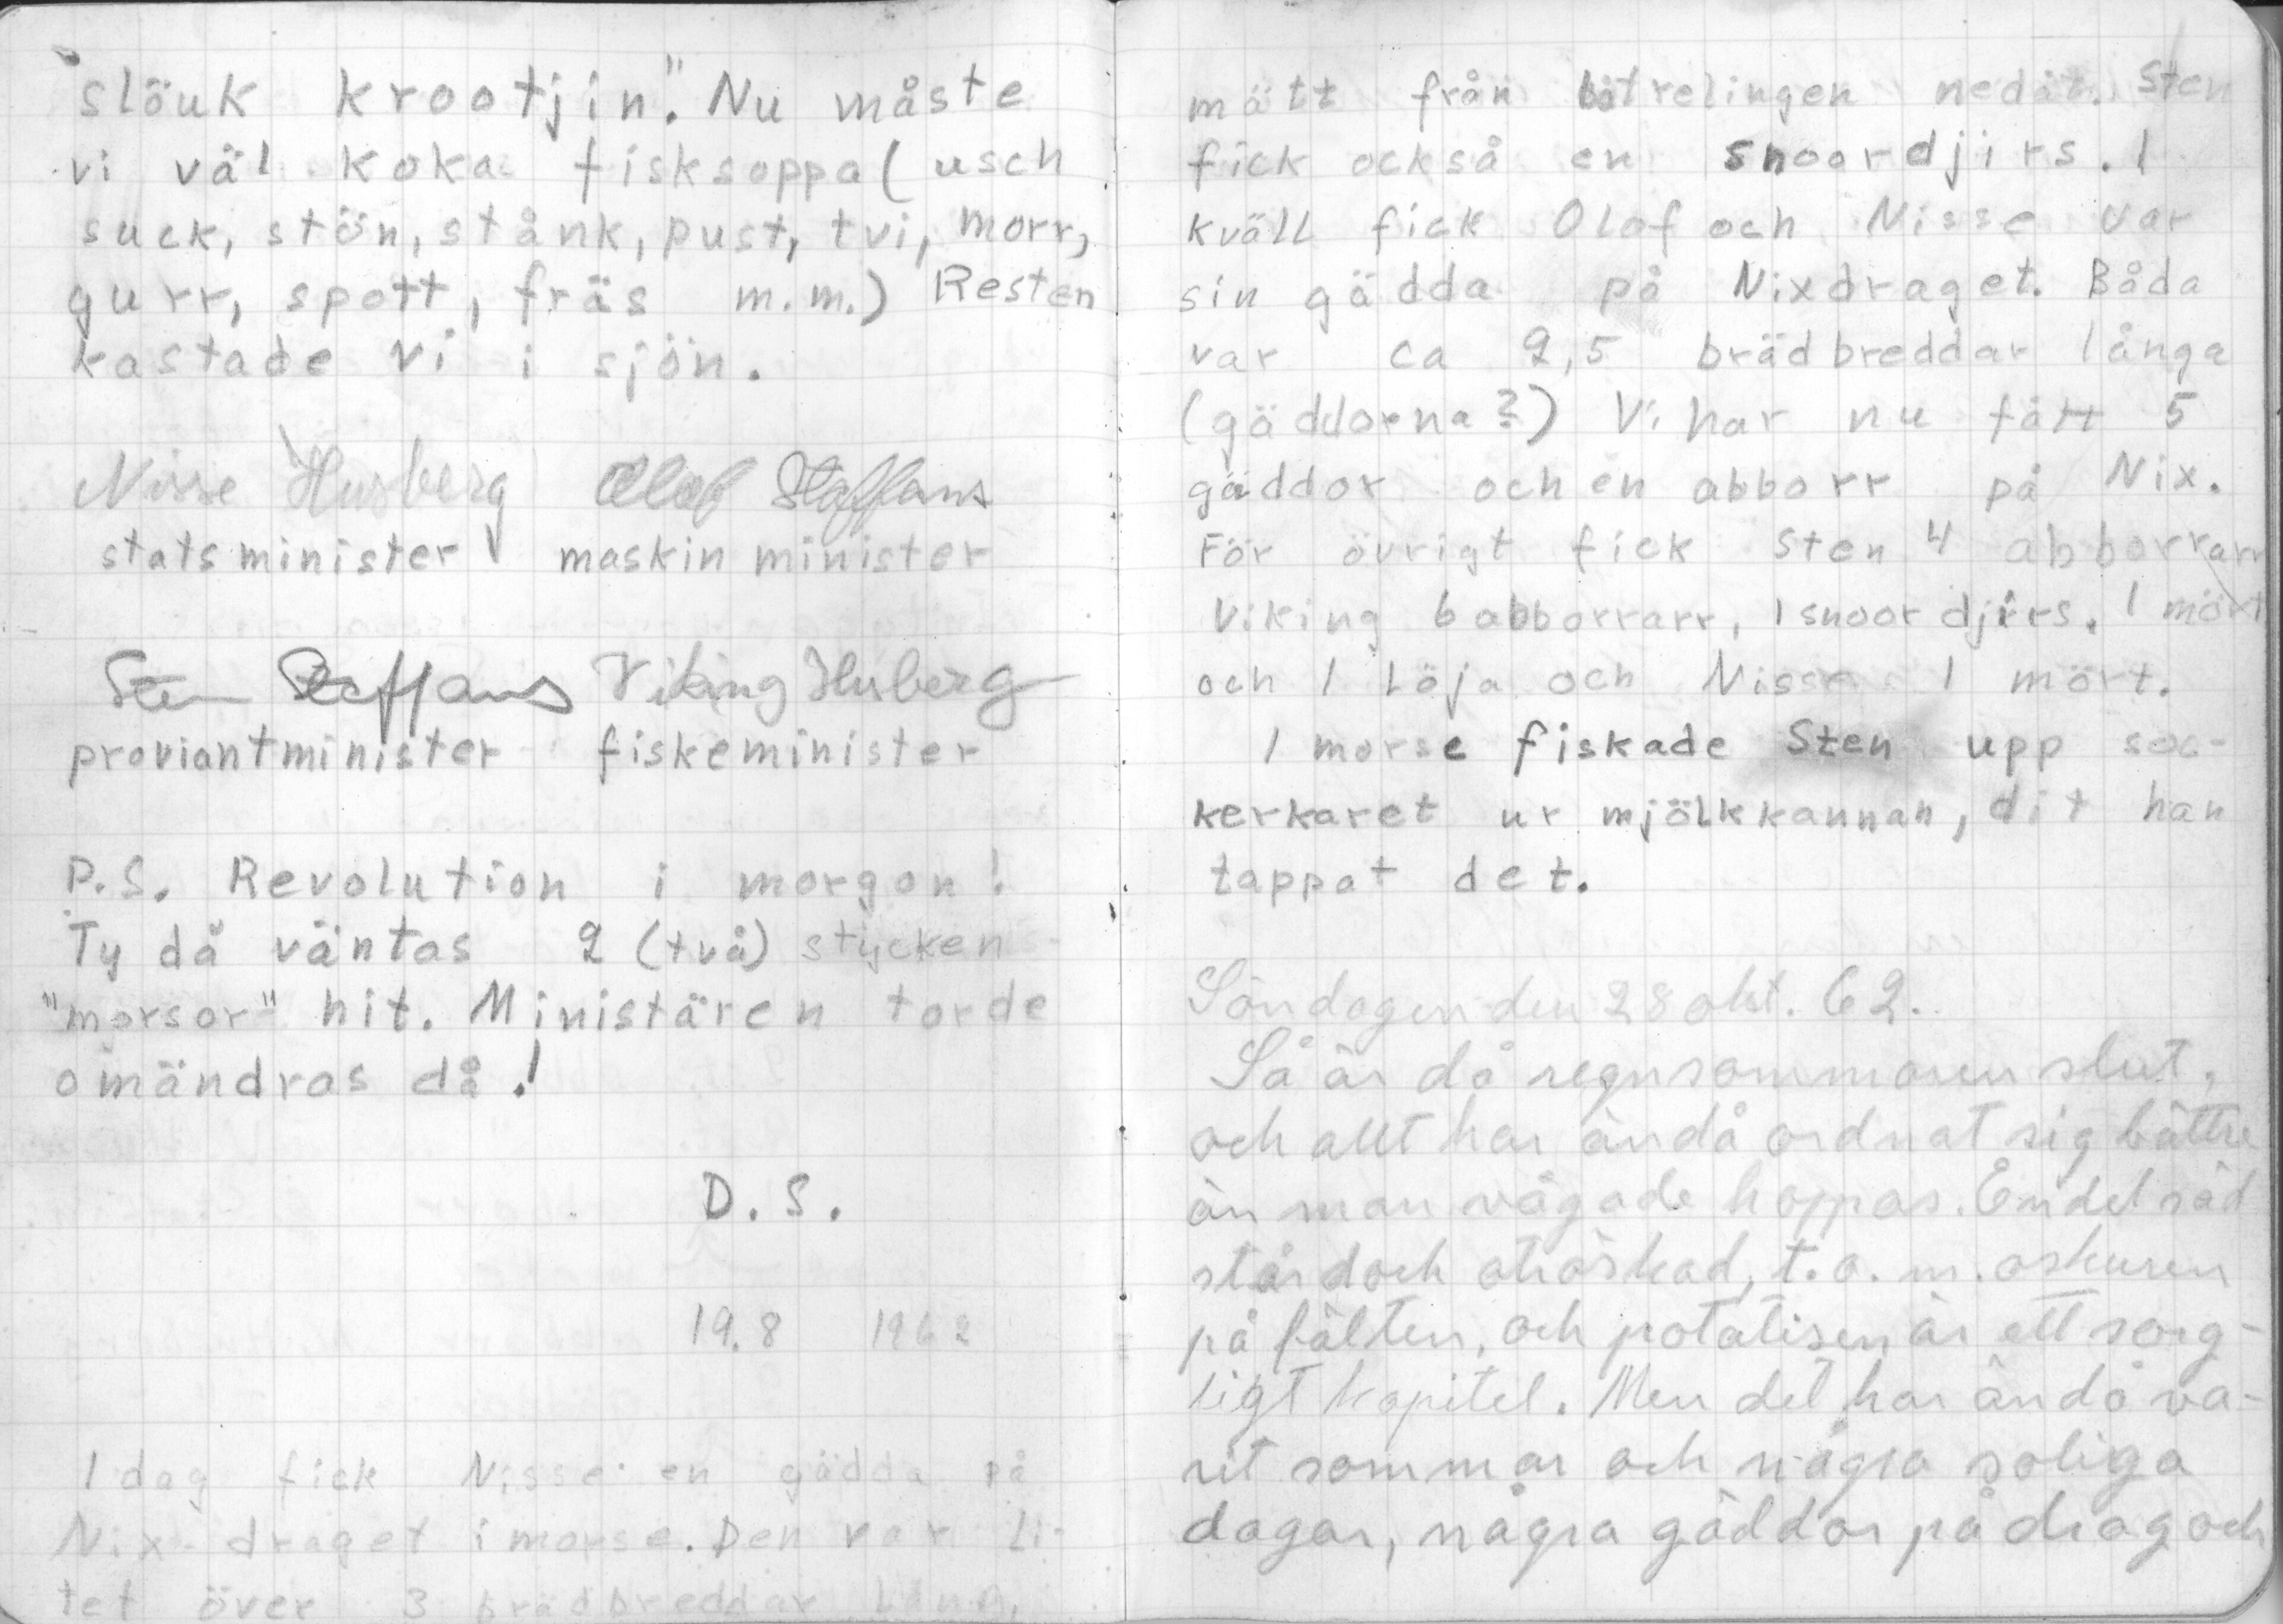 "slöuk krootjin". Nu måste
vi väl koka fisksoppa (usch
suck, stön, stånk, pust, tvi, morr,
gurr, spott, fräs m.m.) Resten
kastade vi i sjön.
Nisse Husberg Olof Staffans
statsminister maskinminister
Sten Staffans Viking Husberg
proviantminister fiskeminister
P.S. Revolution i morgon!
Ty då väntas 2 (två) stycken
"morsor" hit. Ministären torde
omändras då!
D.S.
19.8 1962
I dag fick Nisse en gädda på
Nix-draget i morse. Den var li-
tet över 3 brädbreddar lång,
mätt från båtrelingen nedåt. Sten
fick också en snoordjirs. I
kväll fick Olof och Nisse var
sin gädda på Nixdraget. Båda
var ca 2,5 brädbreddar långa
(gäddorna?) Vi har nu fått 5
gäddor och en abborr på Nix.
För övrigt fick Sten 4 abborrarr
Viking 6 abborrarr, 1 snoordjirs, 1 mört
och 1 Löja och Nisse 1 mört.
I morse fiskade Sten upp soc-
kerkaret ur mjölkkannan, dit han
tappat det.
Söndagen den 28 okt. 62.
Så är då regnsommaren slut,
och allt har ändå ordnat sig bättre
än man vågade hoppas. En del säd
står doch otröskad, t.o.m. oskuren
på fälten, och potatisen är ett sorg-
ligt kapitel. Men det har ändå va-
rit sommar och några soliga
dagar, några gäddor på drag och